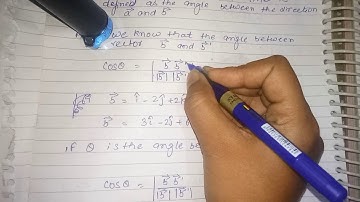 defined as the angle between the direction
a⃗ and b⃗
we know that the angle between
vector b⃗ and b⃗'
cosθ = | b⃗ b⃗
|b⃗| |b⃗'|
b⃗ = î - 2ĵ + 2
b⃗' = 3î - 2ĵ +
if θ is the angle be
cosθ = | b⃗ b⃗' |
|b⃗| |b⃗'|